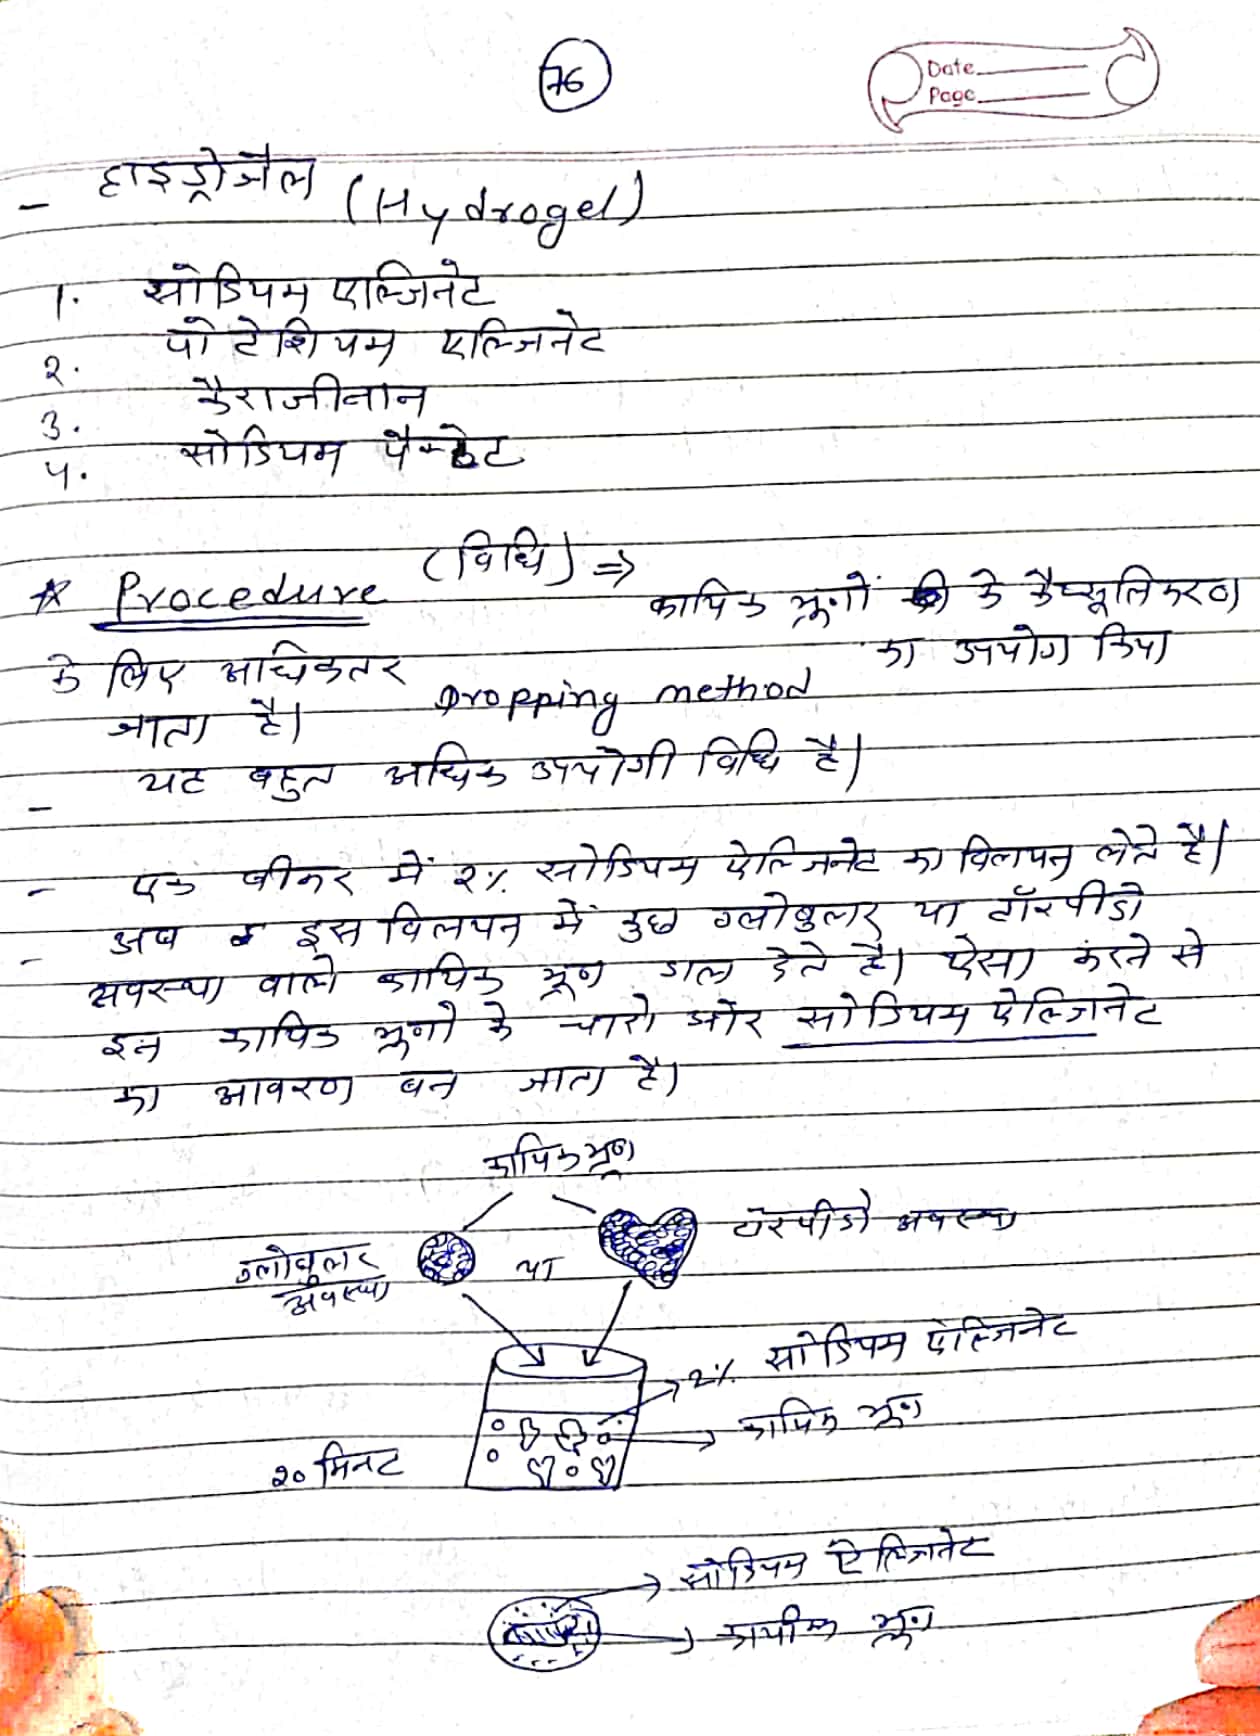 76
Date
Page
- हाइड्रोजैल (Hydrogel)
1. सोडियम एल्जिनेट
2. पोटेशियम एल्जिनेट
3. कैराजीनान
4. सोडियम पैक्टेट
* Procedure (विधि) ⇒ कायिक भ्रूणों के कैप्सूलिकरण
के लिए अधिकतर Dropping method का उपयोग किया
जाता है।
- यह बहुत अधिक उपयोगी विधि है।
- एक बीकर में 2% सोडियम ऐल्जिनेट का विलयन लेते है।
- अब इस विलयन में कुछ ग्लोबुलर या टॉरपीडो
अवस्था वाले कायिक भ्रूण डाल देते है। ऐसा करने से
इन कायिक भ्रूणो के चारो ओर सोडियम ऐल्जिनेट
का आवरण बन जाता है।
कायिक भ्रूण
ग्लोबुलर अवस्था
या
टॉरपीडो अवस्था
2% सोडियम ऐल्जिनेट
कायिक भ्रूण
20 मिनट
सोडियम ऐल्जिनेट
कायीक भ्रूण